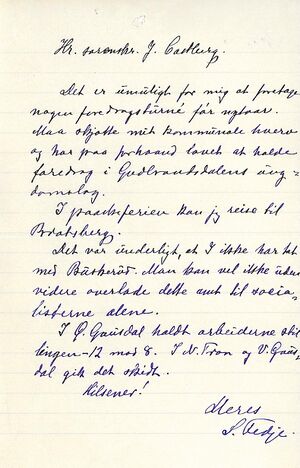 Hr. sorenskr. J. Castberg.
Det er umuligt for mig at foretage
nogen foredragsturné før nytaar.
Maa skjøtte mit kommunale hverv
og har paa forhaand lovet at holde
foredrag i Gudbrandsdalens ung-
domslag.
I paaskeferien kan jeg reise til
Bratsberg.
Det var underligt, at I ikke har tat
med Buskerud. Man kan vel ikke uden
videre overlade dette amt til socia-
listerne alene.
I Ø. Gausdal holdt arbeiderne stil-
lingen - 12 mod 8. I N. Fron og V. Gaus-
dal gik det skidt.
Hilsener!
Deres